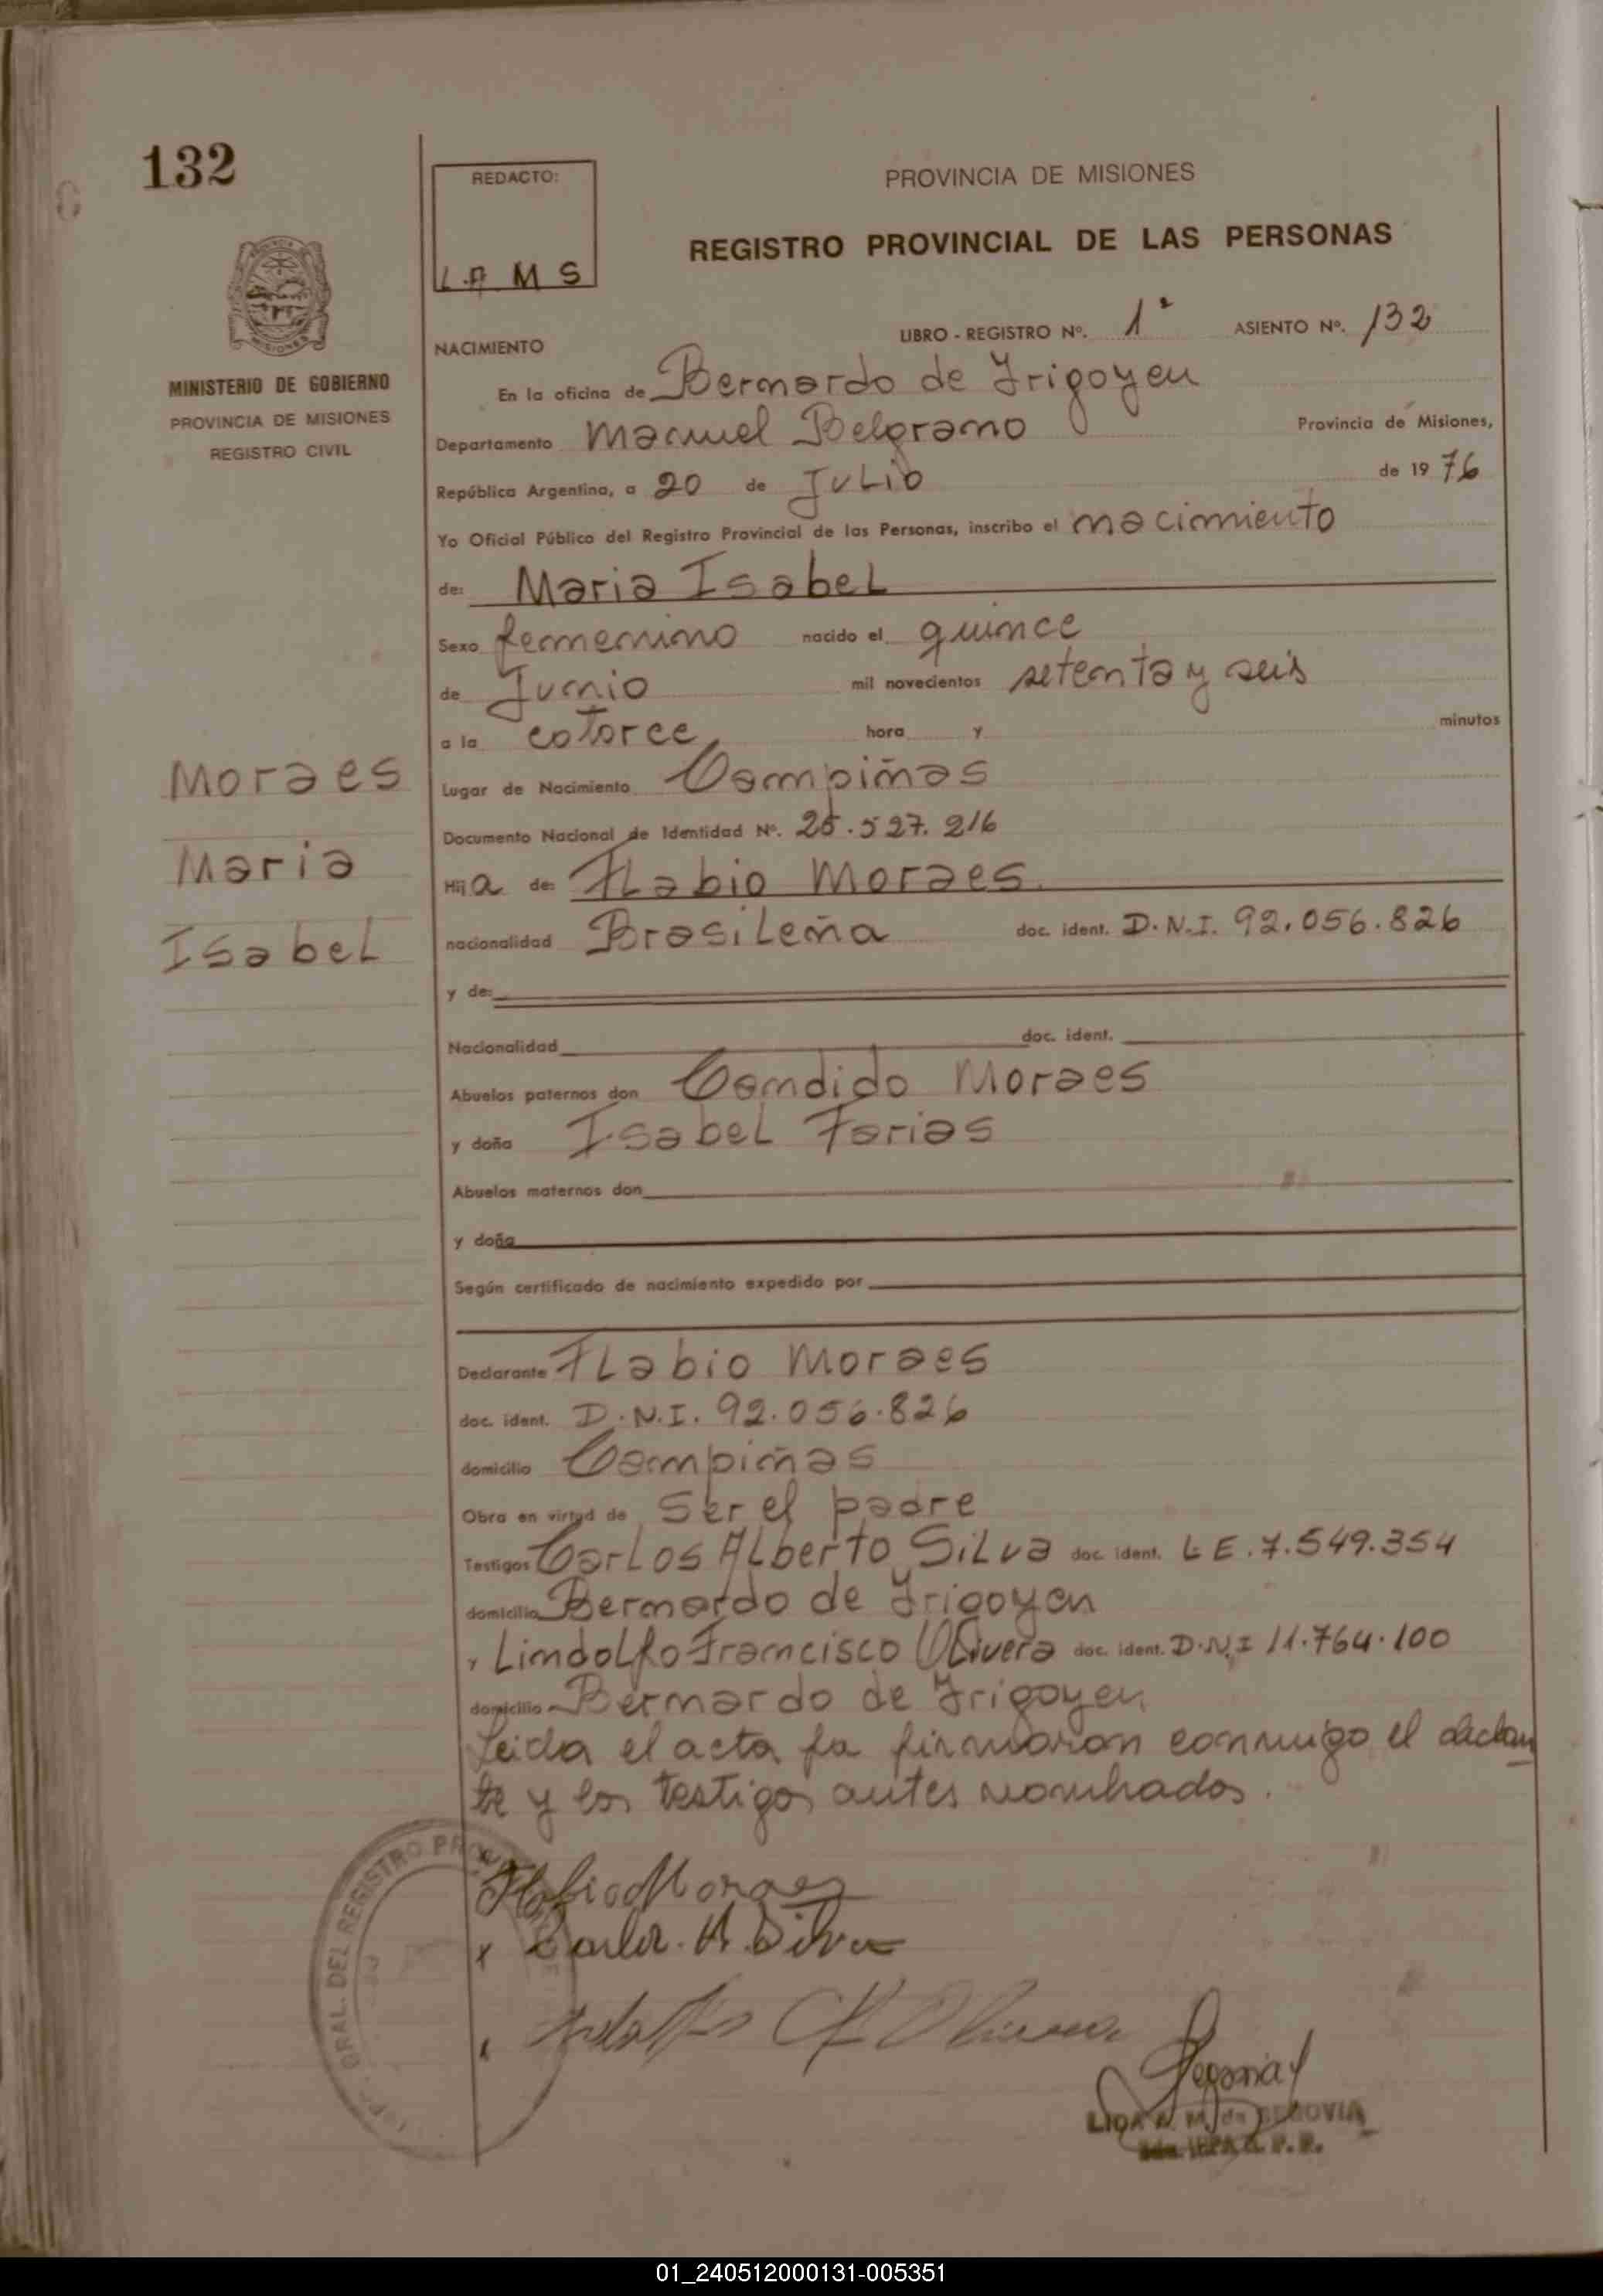 132
REDACTO:
L.A M S
PROVINCIA DE MISIONES
REGISTRO PROVINCIAL DE LAS PERSONAS
MINISTERIO DE GOBIERNO
PROVINCIA DE MISIONES
REGISTRO CIVIL
Moraes
Maria
Isabel
LIBRO - REGISTRO Nº. 1º ASIENTO Nº. 132
NACIMIENTO
En la oficina de Bernardo de Irigoyen
Departamento Manuel Belgrano Provincia de Misiones,
República Argentina, a 20 de Julio de 1976
Yo Oficial Público del Registro Provincial de las Personas, inscribo el nacimiento
de: Maria Isabel
Sexo femenino nacido el quince
de Junio mil novecientos setenta y seis
a la catorce hora y minutos
Lugar de Nacimiento Campiñas
Documento Nacional de Identidad Nº. 25.527.216
Hija de: Flabio Moraes
nacionalidad Brasileña doc. ident. D.N.I. 92.056.826
y de:
Nacionalidad doc. ident.
Abuelos paternos don Candido Moraes
y doña Isabel Farias
Abuelos maternos don
y doña
Según certificado de nacimiento expedido por
Declarante Flabio Moraes
doc. ident. D.N.I. 92.056.826
domicilio Campiñas
Obra en virtud de Ser el padre
Testigos Carlos Alberto Silva doc. ident. L E. 7.549.354
domicilio Bernardo de Irigoyen
y Lindolfo Francisco Olivera doc. ident. D.N.I 11.764.100
domicilio Bernardo de Irigoyen
Leida el acta fa firmaron conmigo el declan
te y los testigos antes nombrados.
GRAL. DEL REGISTRO
Flabio Moraes
x Carlos. A. Silva
Segovia
LIDA A. M. de SEGOVIA